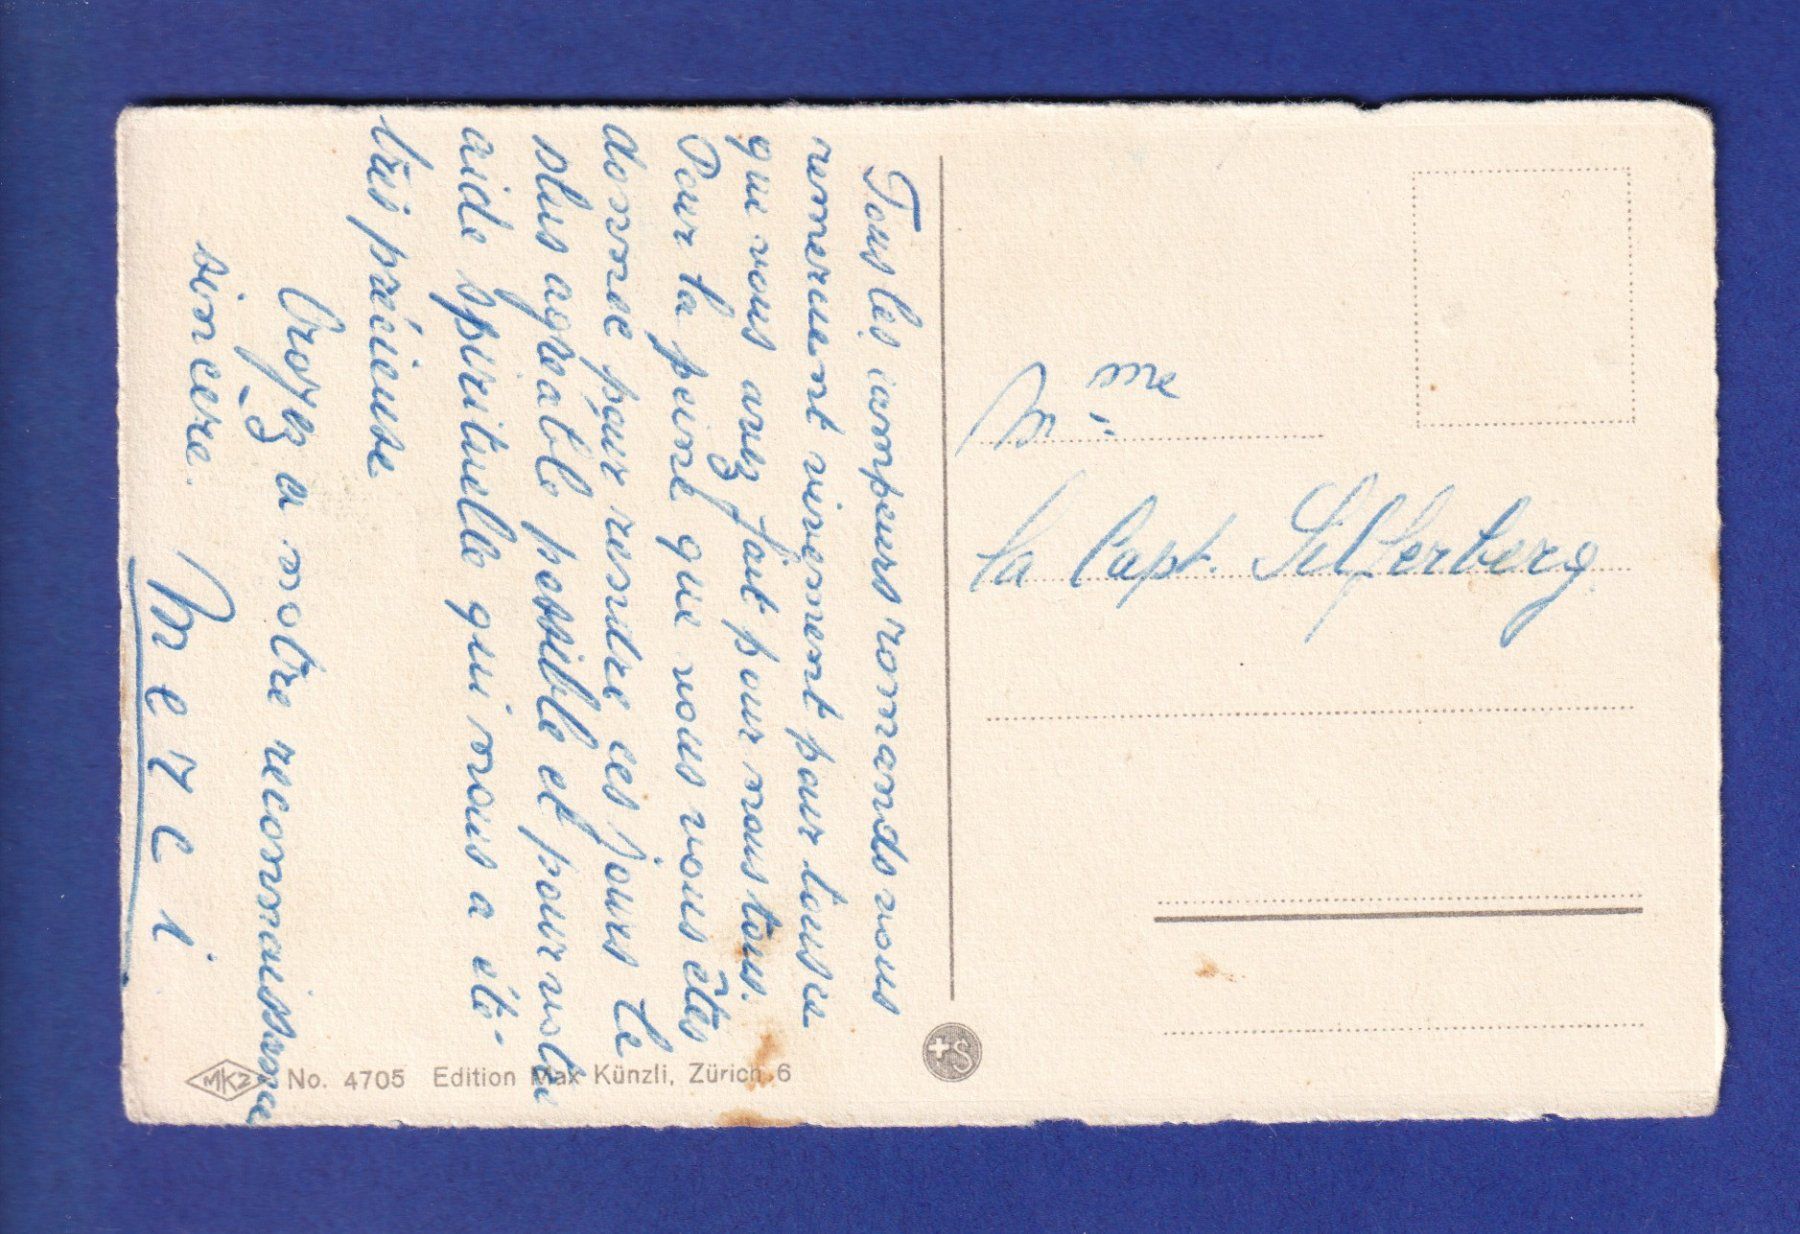 Tous les campeurs romands vous
remercient vivement pour tous ce
que vous avez fait pour nous tous.
Pour la peine que vous vous êtes
donnée pour rendre ces jours le
plus agréable possible et pour votre
aide spirituelle qui nous a été
très précieuse
Croyez a notre reconnaissance
sincère.
Merci
Mme
la Capt. Silferberg.
MKZ No. 4705 Edition Max Künzli, Zürich 6
+S